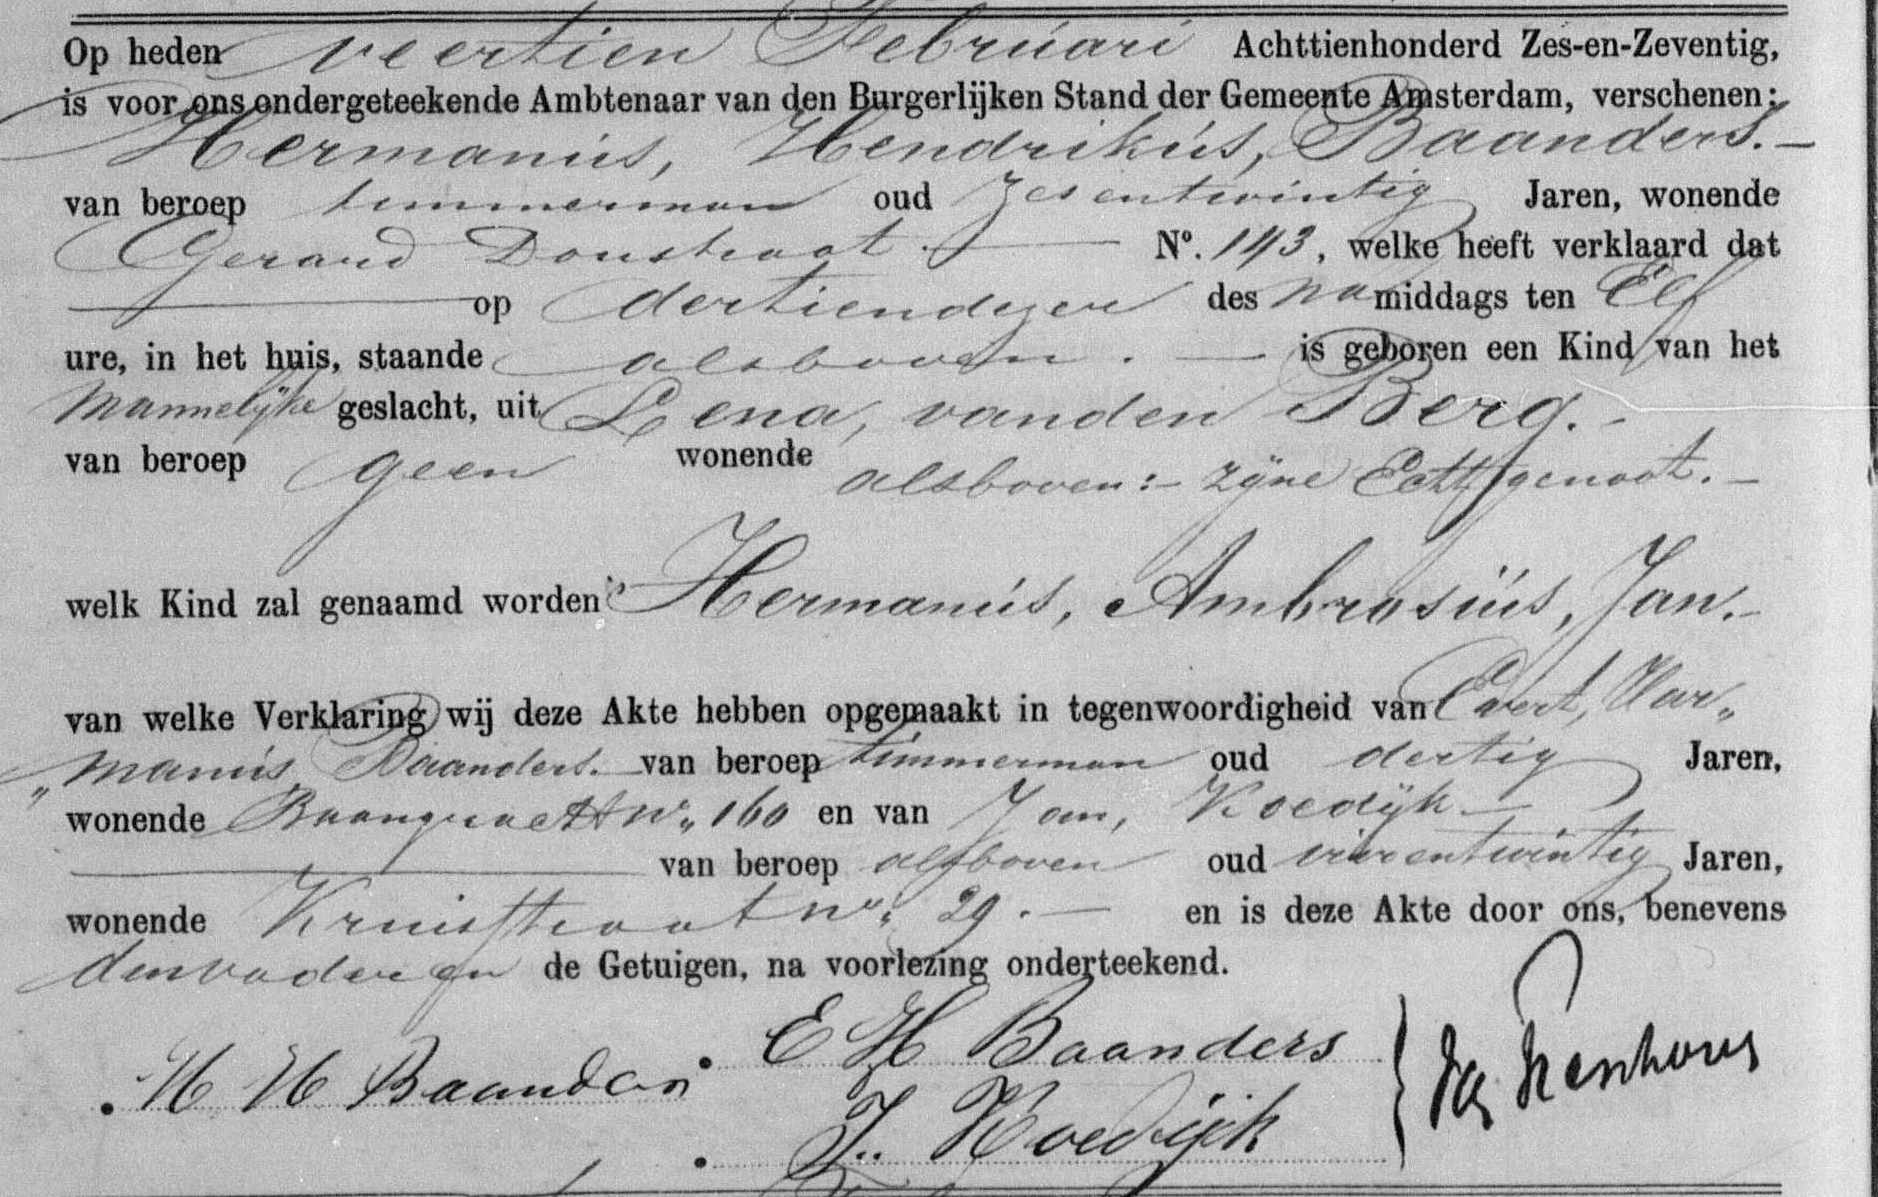 Op heden veertien Februari Achttienhonderd Zes-en-Zeventig,
is voor ons ondergeteekende Ambtenaar van den Burgerlijken Stand der Gemeente Amsterdam, verschenen:
Hermanus, Hendrikus, Baanders. —
van beroep timmerman oud zesentwintig Jaren, wonende
Gerard Doustraat. — Nº. 143, welke heeft verklaard dat
— op dertiendezer des namiddags ten Elf
ure, in het huis, staande alsboven. — is geboren een Kind van het
Mannelijke geslacht, uit Lena, vanden Berg. -
van beroep geen wonende alsboven:- zijne Echtgenoot. —
welk Kind zal genaamd worden Hermanus, Ambrosius, Jan. -
van welke Verklaring wij deze Akte hebben opgemaakt in tegenwoordigheid van Evert, Har„
„manus Baanders. van beroep timmerman oud dertig Jaren,
wonende Baangracht nº 160 en van Jan, Koedijk —
— van beroep alsboven oud vierentwintig Jaren,
wonende Kruisstraat nº. 29. — en is deze Akte door ons, benevens
denvader en de Getuigen, na voorlezing onderteekend.
E H Baanders
H H Baanders
J. Koedijk